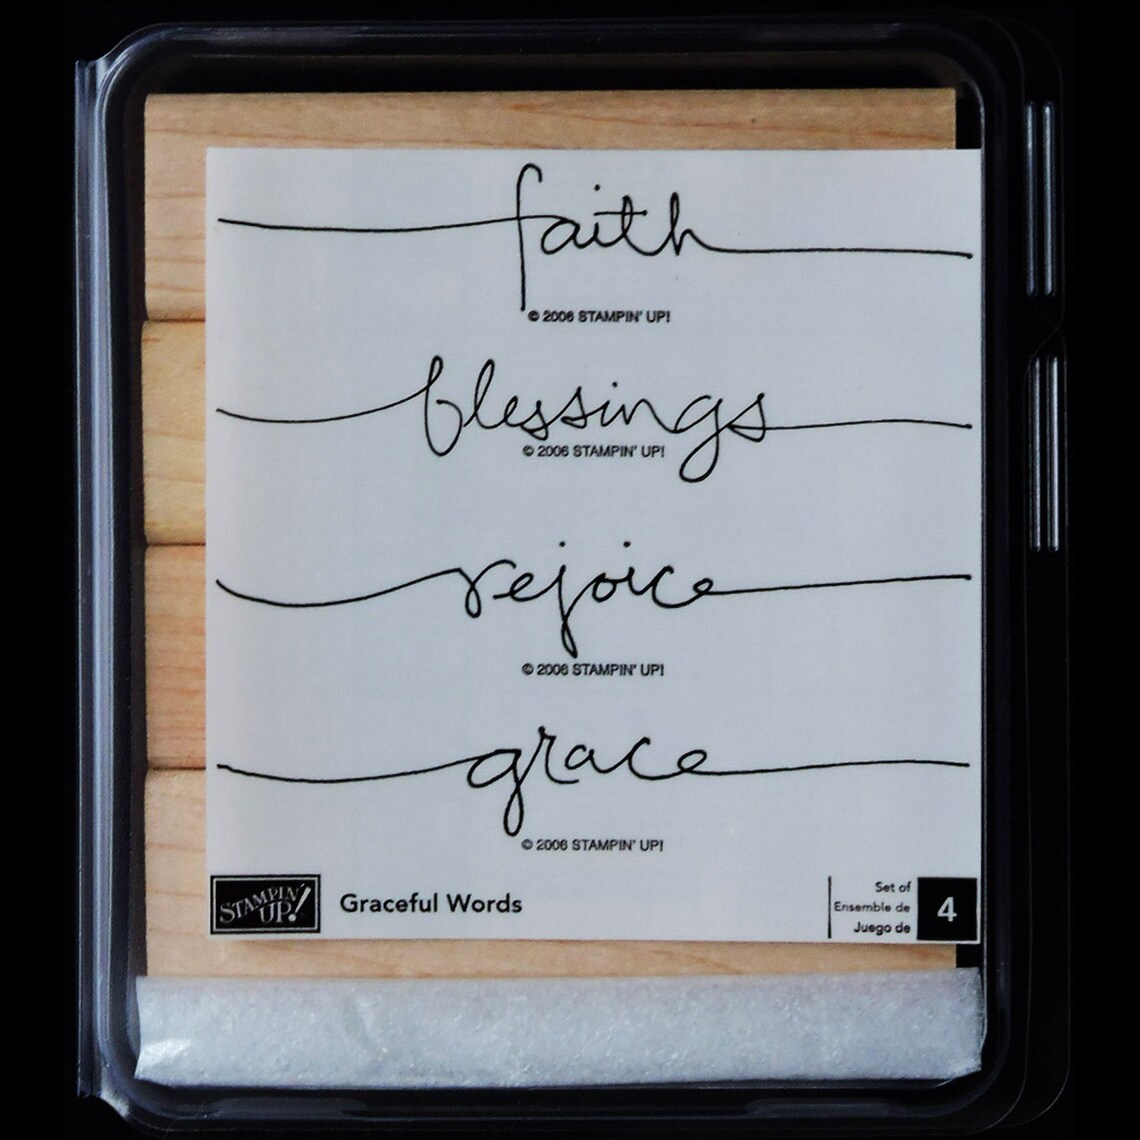 faith
© 2006 STAMPIN' UP!
blessings
© 2006 STAMPIN' UP!
rejoice
© 2006 STAMPIN' UP!
grace
© 2006 STAMPIN' UP!
STAMPIN' UP!
Graceful Words
Set of
Ensemble de
Juego de
4